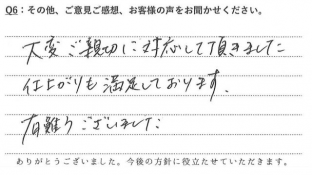 Q6：その他、ご意見ご感想、お客様の声をお聞かせください。
大変ご親切に対応して頂きました
仕上がりも満足しております。
有難うございました
ありがとうございました。今後の方針に役立たせていただきます。